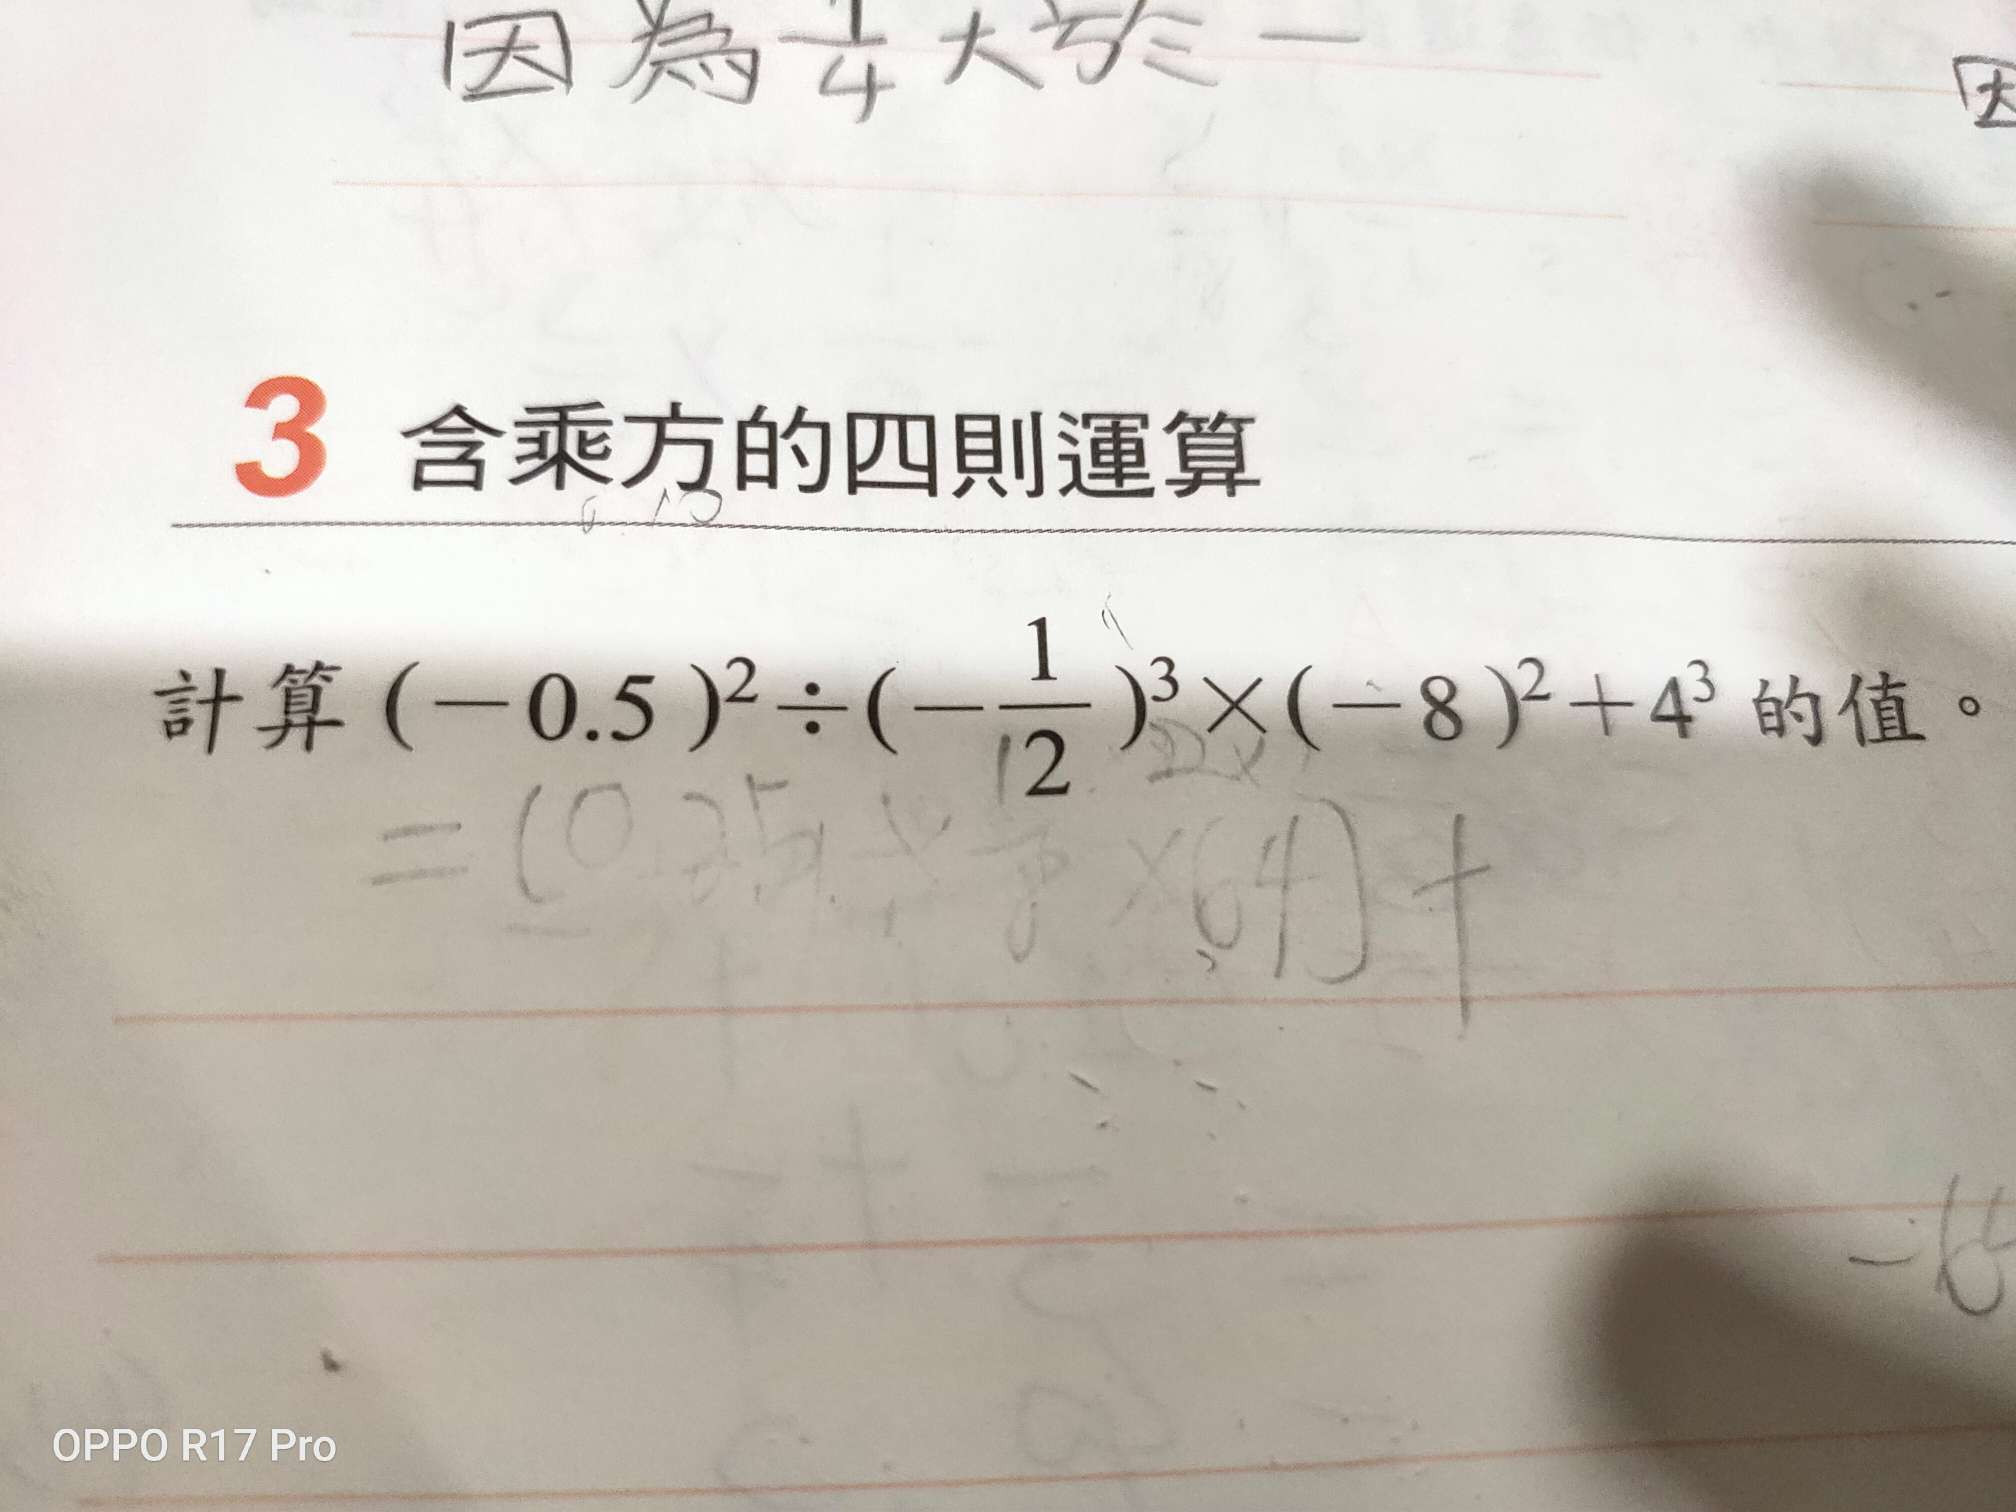 因為 1/4 大於 一
因
3 含乘方的四則運算
計算 (－0.5)²÷(－1/2)³×(－8)²＋4³ 的值。
×64)+
OPPO R17 Pro